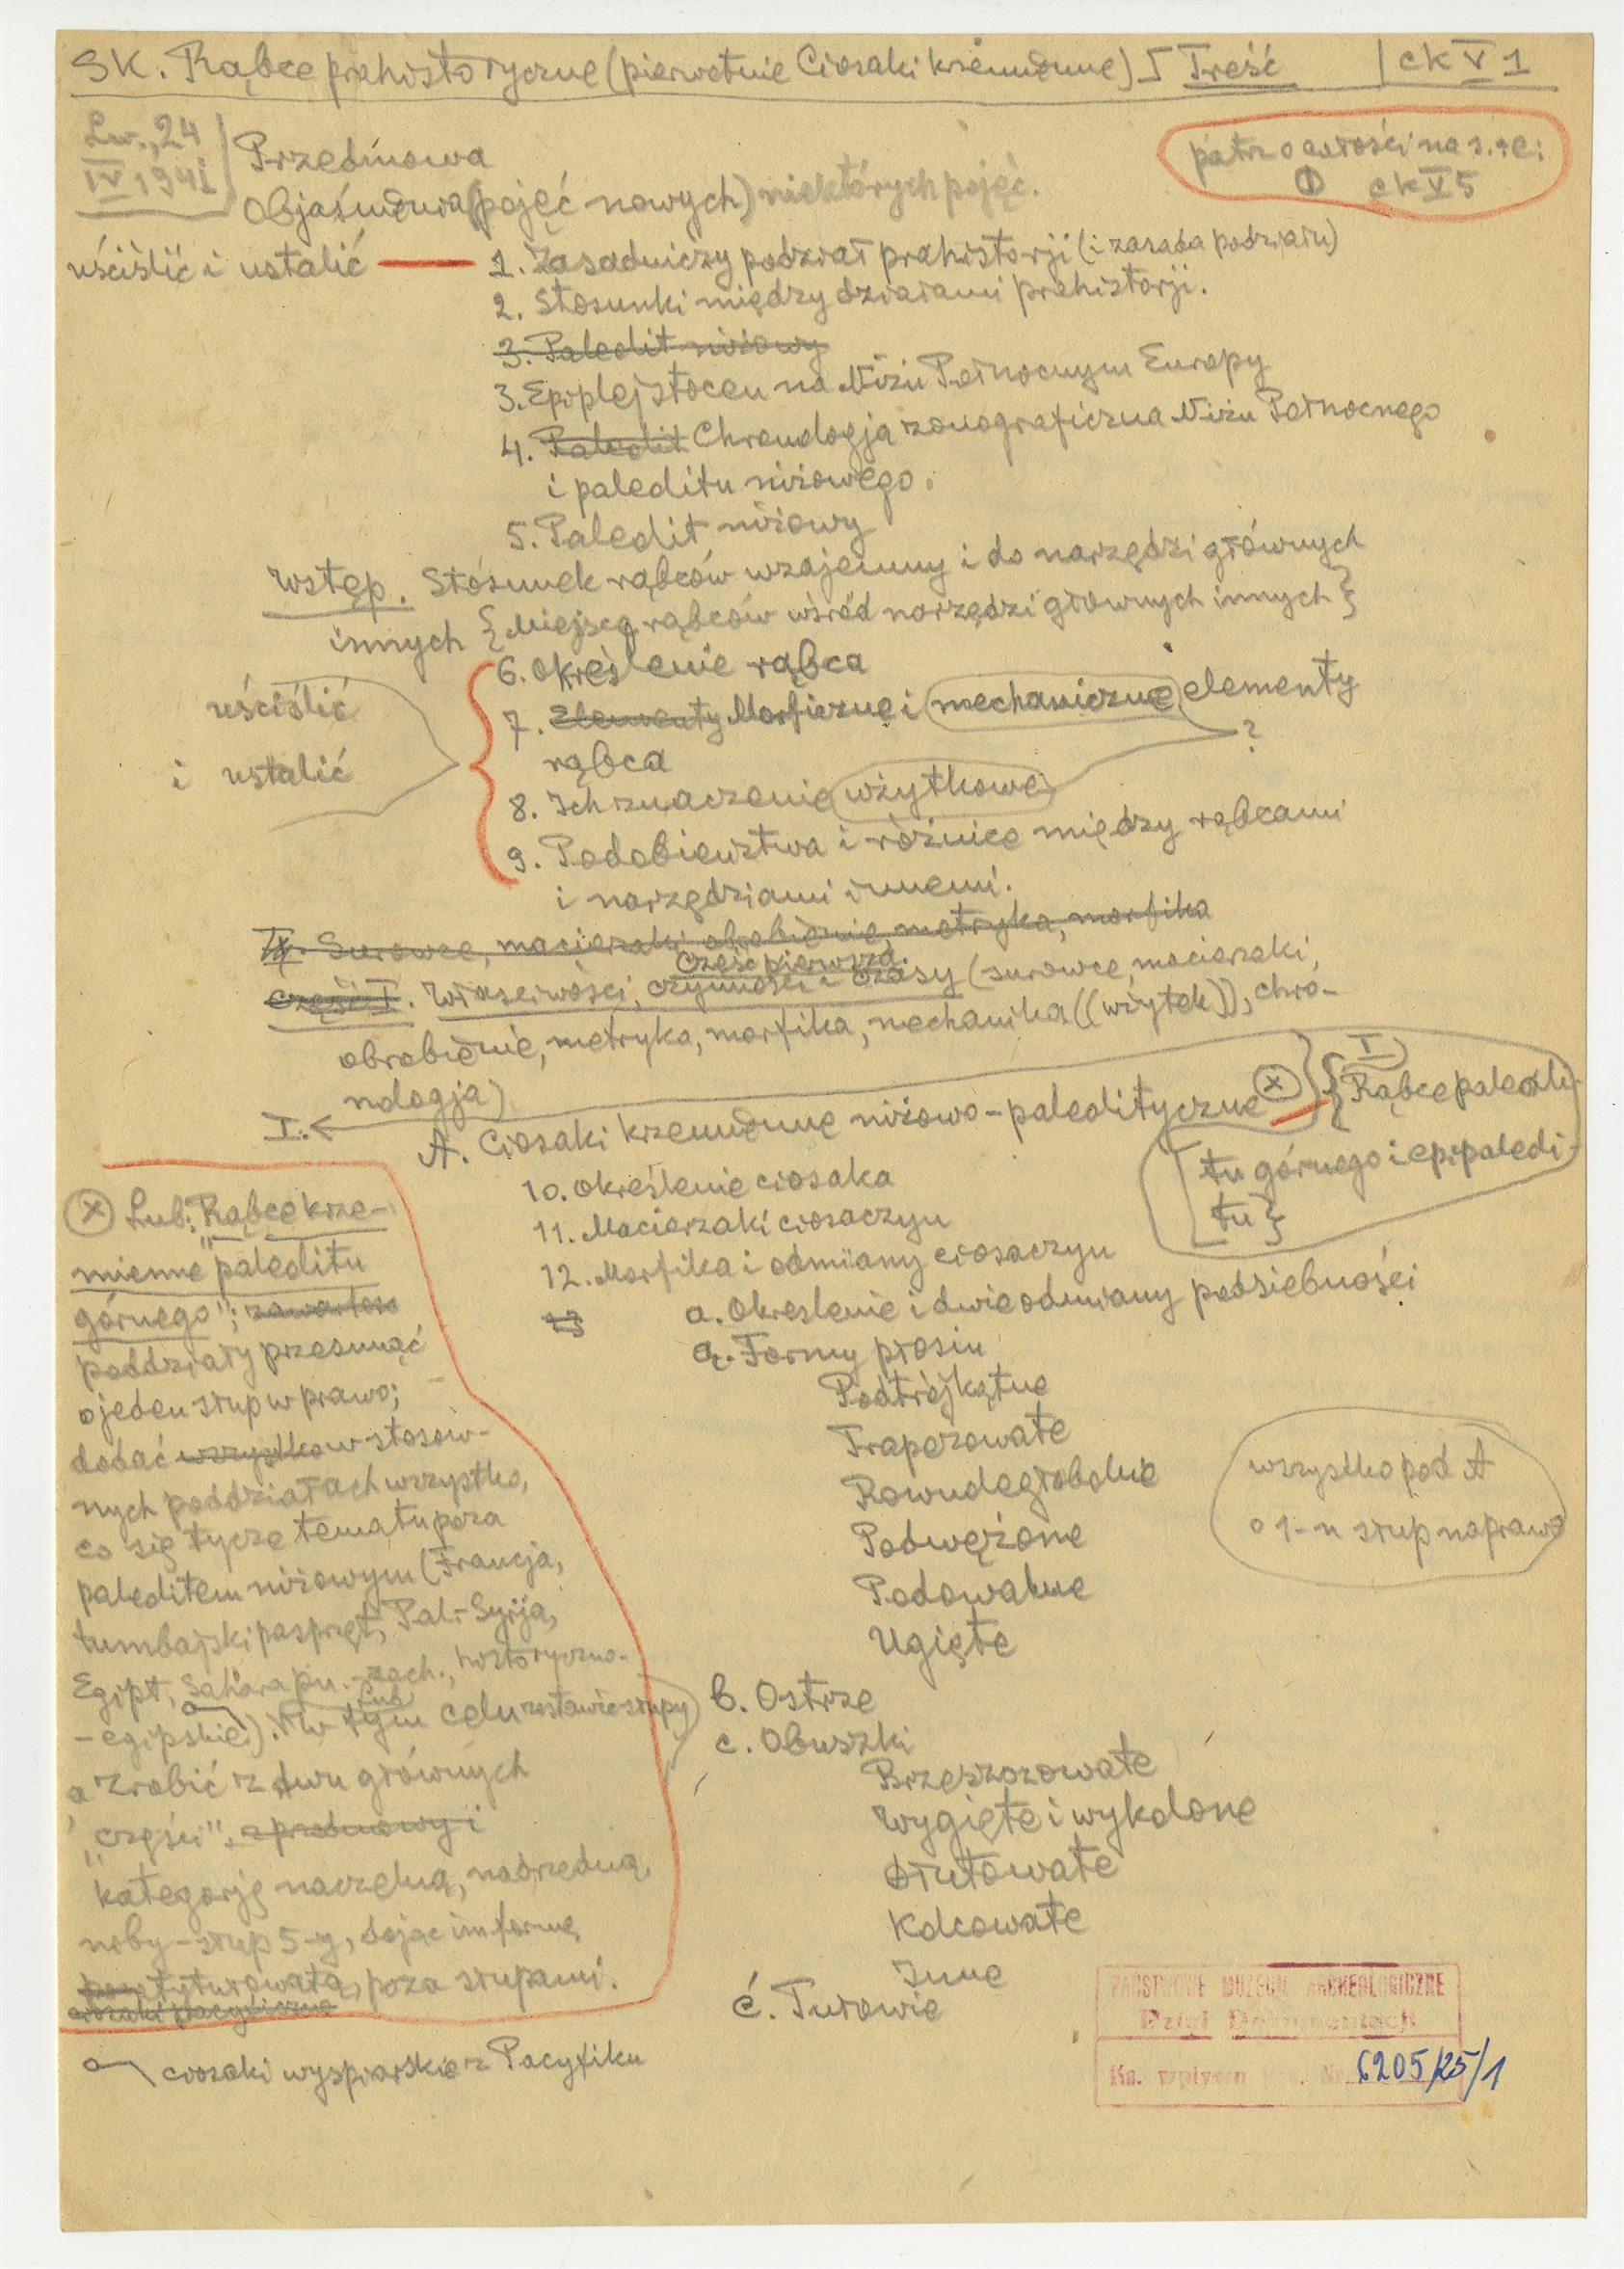 SK. Rąbce prahistoryczne (pierwotnie Ciosaki krzemienne) Treść | ck V 1
Lw., 24
IV 1941
patrz całości na s.
① ck V 5
Przedmowa
Objaśnienia (pojęć nowych) niektórych pojęć.
uściślić i ustalić
1. Zasadniczy podział prahistorji (i zasada podziału)
2. Stosunki między działami prahistorji.
3. Paleolit niżowy
3. Epiplejstocen na Niżu Północnym Europy
4. Paleolit Chronologja zonograficzna Niżu Północnego
i paleolitu niżowego.
5. Paleolit niżowy
Wstęp. Stósunek rąbców wzajemny i do narzędzi głównych
innych {Miejsce rąbców wśród narzędzi głównych innych}
uściślić
i ustalić
6. Określenie rąbca
7. Elementy Morficzne i mechaniczne elementy
rąbca
?
8. Ich znaczenie użytkowe
9. Podobieństwa i różnice między rąbcami
i narzędziami innemi.
Surowce, macierzaki, obrobienie, metryka, morfika
Część pierwsza.
Część I. Właściwości, czynności i czasy (surowce, macierzaki,
obrobienie, metryka, morfika, mechanika ((użytek)), chro-
nologja)
I.
A. Ciosaki krzemienne niżowo-paleolityczne ⊗
I)
{Rąbce paleoli-
tu górnego i epipaleoli-
tu}
10. Określenie ciosaka
11. Macierzaki ciosaczyn
12. Morfika i odmiany ciosaczyn
13
a. Określenie i dwie odmiany podsiebności
ą. Formy płosin
Podtrójkątne
Trapezowate
Równoległoboknie
Podwężone
Podowalne
Ugięte
wszystko pod A
o 1-n słup na prawo
b. Ostrze
c. Obuszki
Brzeszczowate
Wygięte i wykolone
Dłutowate
Kolcowate
Inne
ć. Tułowie
⊗ Lub: "Rąbce krze-
mienne paleolitu
górnego"; zawartość
poddziały przesunąć
o jeden słup w prawo;
dodać wszystko w stosow-
nych poddziałach wszystko,
co się tycze tematu poza
paleolitem niżowym (Francja,
tumbajski pasprzęt, Pal.-Syrja,
Egipt, Sahara pn.-zach., historyczno-
-egipskie). Lub w tym celu zostawić słupy
a Zrobić z dwu głównych
"części".
kategorję naczelną, nadrzędną,
niby-słup 5-y, dając im formę
tytułowatą, poza słupami.
ciosaki pacyficzne
ciosaki wyspiarskie z Pacyfiku
PAŃSTWOWE MUZEUM ARCHEOLOGICZNE
Dział Dokumentacji
Ks. wpływu Nr. 6205/25/1